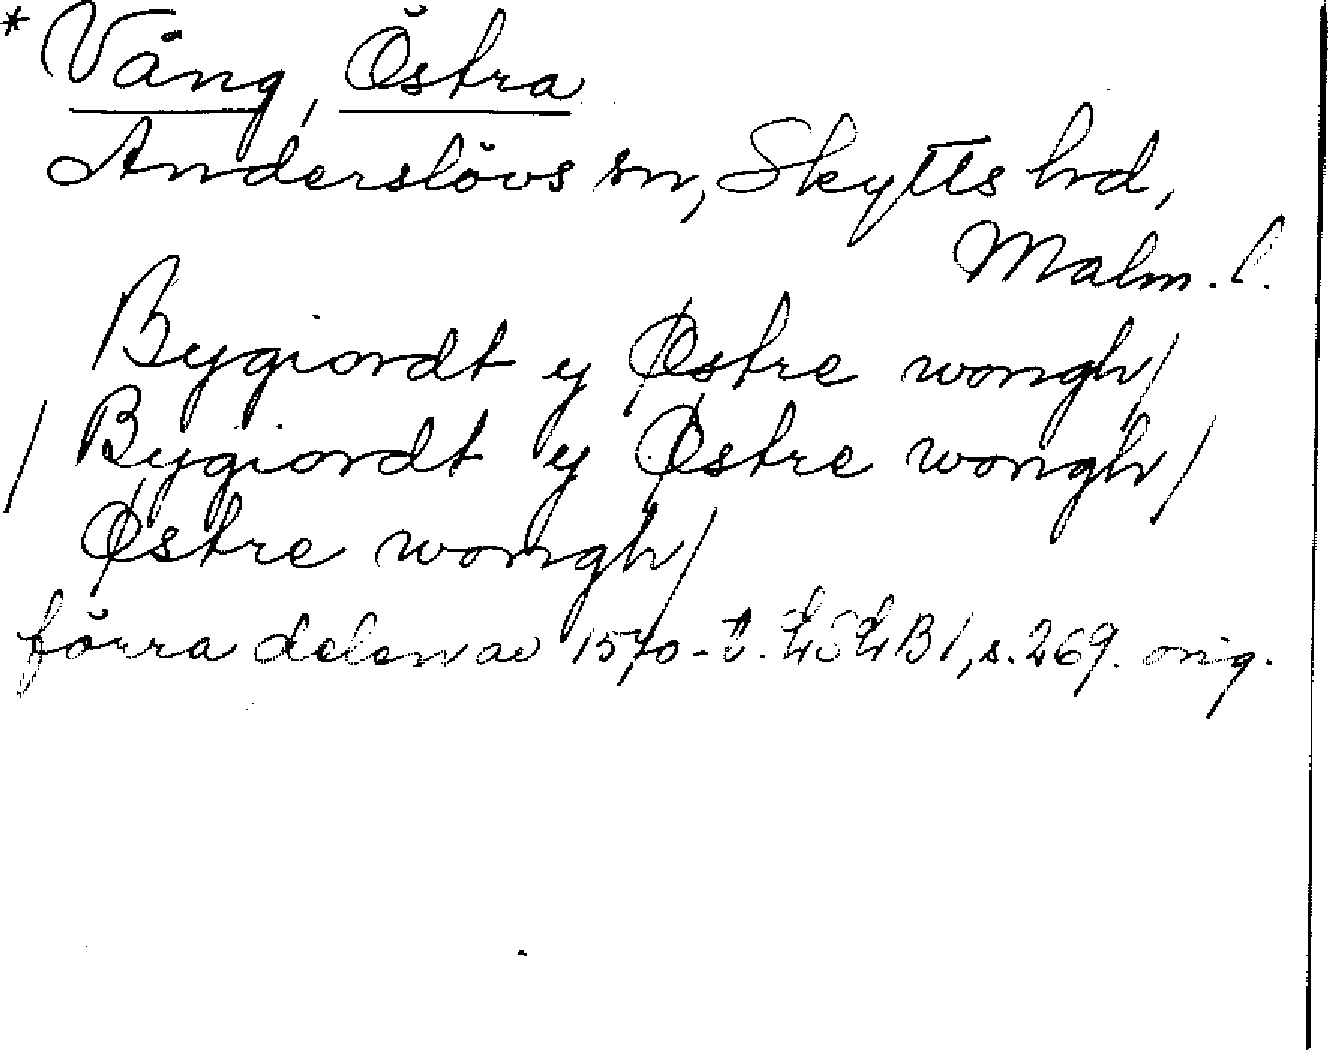 * Vång, Östra
Anderslövs sn, Skytts hd,
Malm. l.
Bygiordt y Østre wongh/
/ Bygiordt y Østre wongh/
Østre wongh/
förra delen av 1570-t. LSLB1, s. 269. orig.